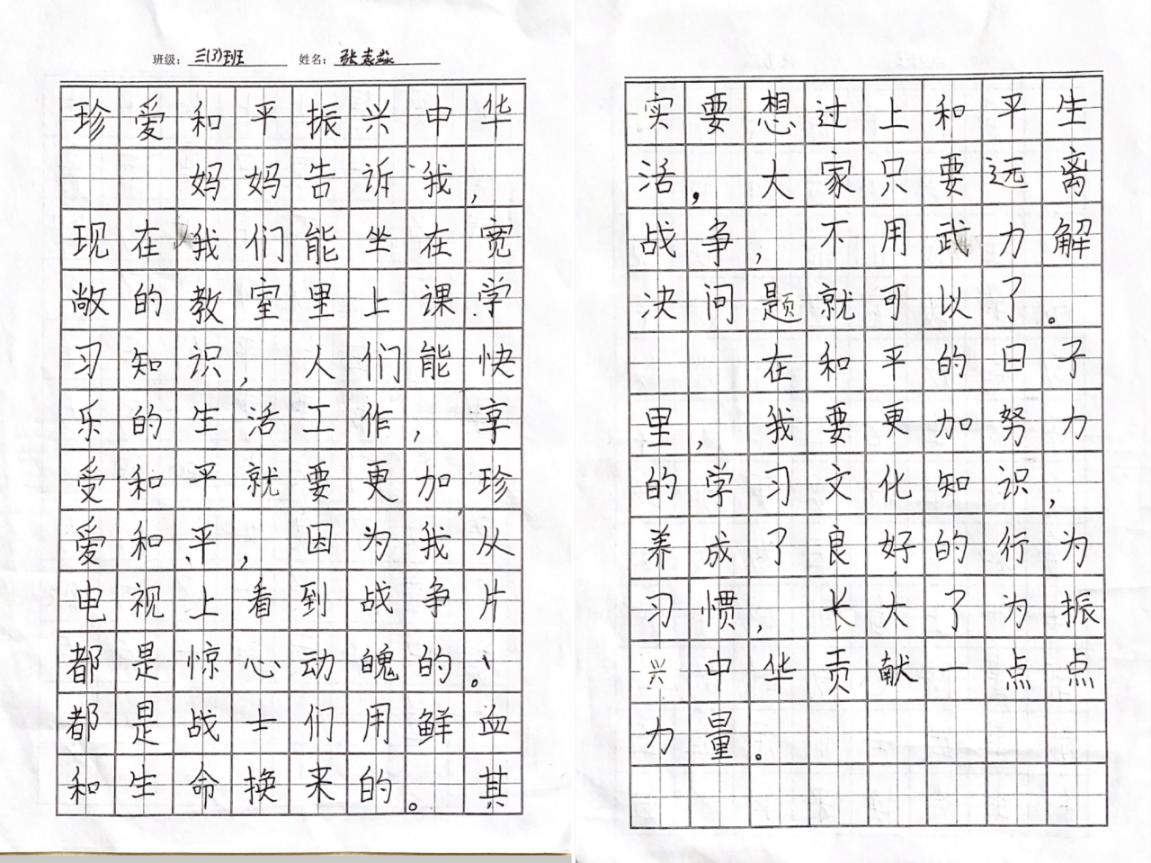 班级：三(3)班 姓名：张志
珍爱和平振兴中华
妈妈告诉我，
现在我们能坐在宽
敞的教室里上课学
习知识，人们能快
乐的生活工作，享
受和平就要更加珍
爱和平，因为我从
电视上看到战争片
都是惊心动魄的。
都是战士们用鲜血
和生命换来的。其
实要想过上和平生
活，大家只要远离
战争，不用武力解
决问题就可以了。
在和平的日子
里，我要更加努力
的学习文化知识，
养成了良好的行为
习惯，长大了为振
兴中华贡献一点点
力量。